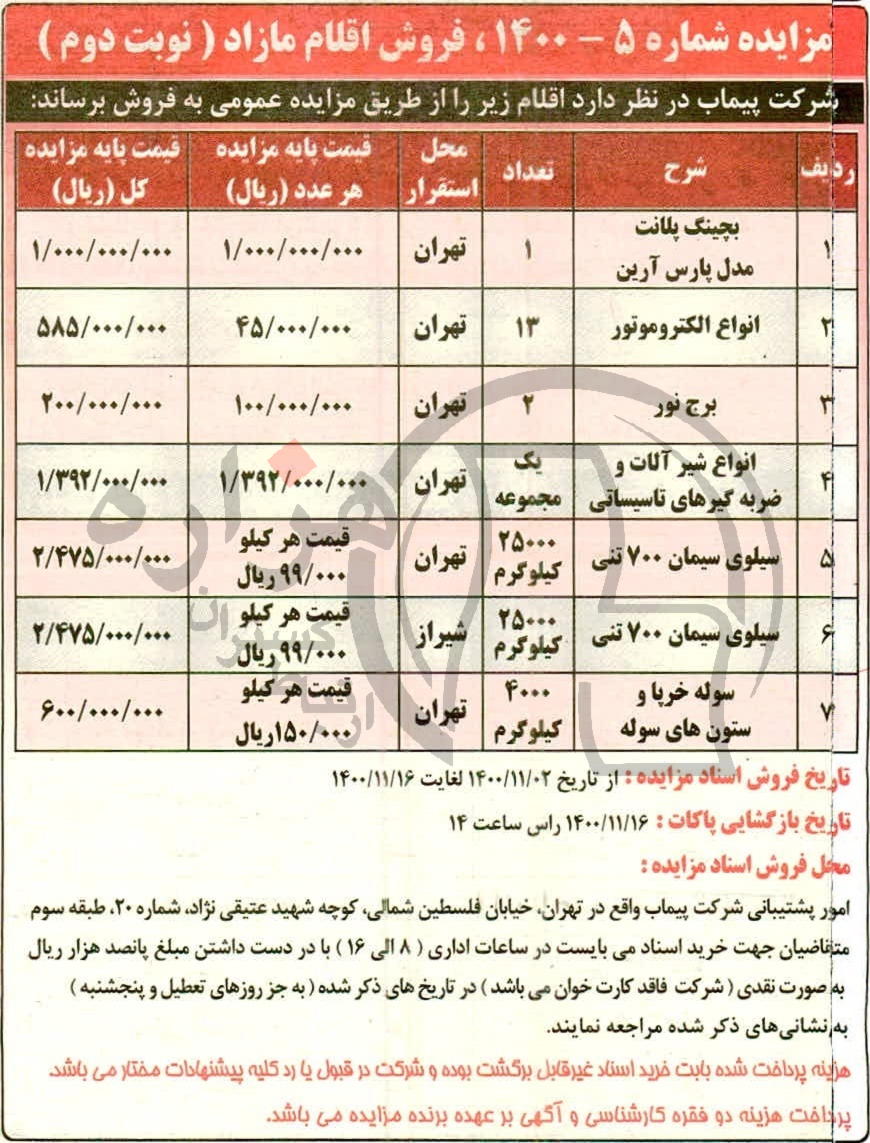 مزایده شماره ۵ – ۱۴۰۰ ، فروش اقلام مازاد ( نوبت دوم )
شرکت پیماب در نظر دارد اقلام زیر را از طریق مزایده عمومی به فروش برساند:
ردیف شرح تعداد محل استقرار قیمت پایه مزایده هر عدد (ریال) قیمت پایه مزایده کل (ریال)
۱ بچینگ پلانت مدل پارس آرین ۱ تهران ۱/۰۰۰/۰۰۰/۰۰۰ ۱/۰۰۰/۰۰۰/۰۰۰
۲ انواع الکتروموتور ۱۳ تهران ۴۵/۰۰۰/۰۰۰ ۵۸۵/۰۰۰/۰۰۰
۳ برج نور ۲ تهران ۱۰۰/۰۰۰/۰۰۰ ۲۰۰/۰۰۰/۰۰۰
۴ انواع شیر آلات و ضربه گیرهای تاسیساتی یک مجموعه تهران ۱/۳۹۲/۰۰۰/۰۰۰ ۱/۳۹۲/۰۰۰/۰۰۰
۵ سیلوی سیمان ۷۰۰ تنی ۲۵۰۰۰ کیلوگرم تهران قیمت هر کیلو ۹۹/۰۰۰ ریال ۲/۴۷۵/۰۰۰/۰۰۰
۶ سیلوی سیمان ۷۰۰ تنی ۲۵۰۰۰ کیلوگرم شیراز قیمت هر کیلو ۹۹/۰۰۰ ریال ۲/۴۷۵/۰۰۰/۰۰۰
۷ سوله خرپا و ستون های سوله ۴۰۰۰ کیلوگرم تهران قیمت هر کیلو ۱۵۰/۰۰۰ریال ۶۰۰/۰۰۰/۰۰۰
تاریخ فروش اسناد مزایده : از تاریخ ۱۴۰۰/۱۱/۰۲ لغایت ۱۴۰۰/۱۱/۱۶
تاریخ بازگشایی پاکات : ۱۴۰۰/۱۱/۱۶ راس ساعت ۱۴
محل فروش اسناد مزایده :
امور پشتیبانی شرکت پیماب واقع در تهران، خیابان فلسطین شمالی، کوچه شهید عتیقی نژاد، شماره ۲۰، طبقه سوم
متقاضیان جهت خرید اسناد می بایست در ساعات اداری ( ۸ الی ۱۶ ) با در دست داشتن مبلغ پانصد هزار ریال
به صورت نقدی ( شرکت فاقد کارت خوان می باشد ) در تاریخ های ذکر شده ( به جز روزهای تعطیل و پنجشنبه )
به نشانی‌های ذکر شده مراجعه نمایند.
هزینه پرداخت شده بابت خرید اسناد غیرقابل برگشت بوده و شرکت در قبول یا رد کلیه پیشنهادات مختار می باشد.
پرداخت هزینه دو فقره کارشناسی و آگهی بر عهده برنده مزایده می باشد.
هزاره
گستران